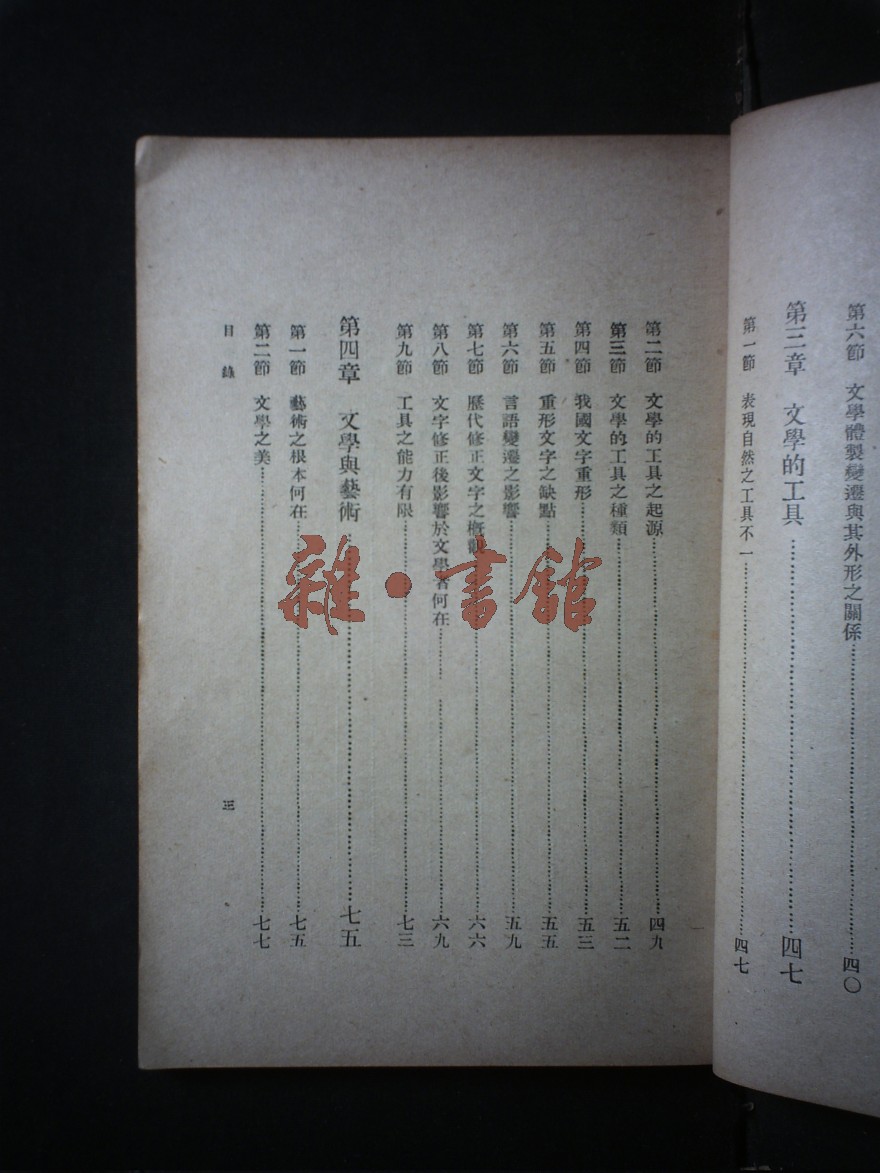 第六節 文學體製變遷與其外形之關係……四〇
第三章 文學的工具……四七
第一節 表現自然之工具不一……四七
第二節 文學的工具之起源……四九
第三節 文學的工具之種類……五二
第四節 我國文字重形……五三
第五節 重形文字之缺點……五五
第六節 言語變遷之影響……五九
第七節 歷代修正文字之概觀……六六
第八節 文字修正後影響於文學者何在……六九
第九節 工具之能力有限……七三
第四章 文學與藝術……七五
第一節 藝術之根本何在……七五
第二節 文學之美……七七
目錄
三
雜·書館